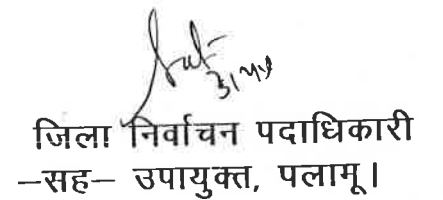 जिला निर्वाचन पदाधिकारी
–सह– उपायुक्त, पलामू।